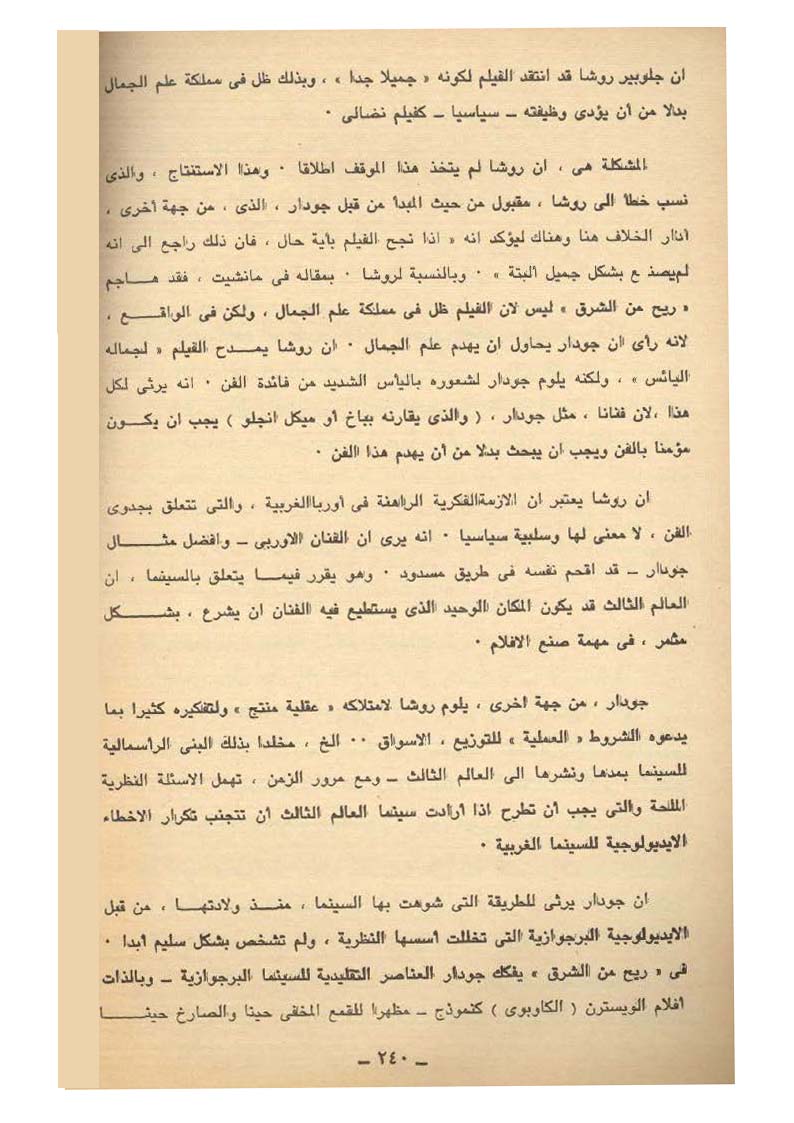 ان جلوبير روشا قد انتقد الفيلم لكونه « جميلا جدا » ، وبذلك ظل فى مملكة علم الجمال
بدلا من أن يؤدى وظيفته ــ سياسيا ــ كفيلم نضالى ٠
المشكلة هى ، ان روشا لم يتخذ هذا الموقف اطلاقا ٠ وهذا الاستنتاج ، والذى
نسب خطأ الى روشا ، مقبول من حيث المبدأ من قبل جودار ، الذى ، من جهة أخرى ،
أدار الخلاف هنا وهناك ليؤكد انه « اذا نجح الفيلم بأية حال ، فان ذلك راجع الى انه
لم يصنع بشكل جميل البتة » ٠ وبالنسبة لروشا ٠ بمقاله فى مانشيت ، فقد هـــاجم
« ريح من الشرق » ليس لان الفيلم ظل فى مملكة علم الجمال ، ولكن فى الواقــــع ،
لانه رأى ان جودار يحاول ان يهدم علم الجمال ٠ ان روشا يمــدح الفيلم « لجماله
اليائس » ، ولكنه يلوم جودار لشعوره باليأس الشديد من فائدة الفن ٠ انه يرثى لكل
هذا ،لان فنانا ، مثل جودار ، ( والذى يقارنه بباخ أو ميكل انجلو ) يجب ان يكــون
مؤمنا بالفن ويجب ان يبحث بدلا من أن يهدم هذا الفن ٠
ان روشا يعتبر ان الازمةالفكرية الراهنة فى أورباالغربية ، والتى تتعلق بجدوى
الفن ، لا معنى لها وسلبية سياسيا ٠ انه يرى ان الفنان الاوربى ــ وافضل مثـــال
جودار ــ قد اقحم نفسه فى طريق مسدود ٠ وهو يقرر فيمــا يتعلق بالسينما ، ان
العالم الثالث قد يكون المكان الوحيد الذى يستطيع فيه الفنان ان يشرع ، بشـــكل
مثمر ، فى مهمة صنع الافلام ٠
جودار ، من جهة اخرى ، يلوم روشا لامتلاكه « عقلية منتج » ولتفكيره كثيرا بما
يدعوه الشروط « العملية » للتوزيع ، الاسواق ٠٠ الخ ، مخلدا بذلك البنى الرأسمالية
للسينما بمدها ونشرها الى العالم الثالث ــ ومع مرور الزمن ، تهمل الاسئلة النظرية
الملحة والتى يجب أن تطرح اذا أرادت سينما العالم الثالث أن تتجنب تكرار الاخطاء
الايديولوجية للسينما الغربية ٠
ان جودار يرثى للطريقة التى شوهت بها السينما ، منــذ ولادتهــا ، من قبل
الايديولوجية البرجوازية التى تخللت أسسها النظرية ، ولم تشخص بشكل سليم أبدا ٠
فى « ريح من الشرق » يفكك جودار العناصر التقليدية للسينما البرجوازية ــ وبالذات
أفلام الويسترن ( الكاوبوى ) كنموذج ــ مظهرا للقمع المخفى حينا والصارخ حينـــا
ــ ٢٤٠ ــ